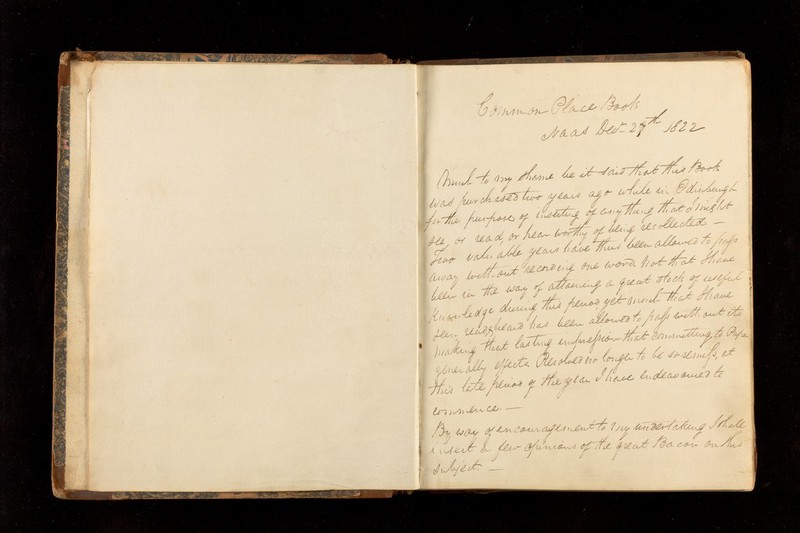 Common Place Book
Naas Decr 29th 1822
Much to my shame be it said that this Book
was purchased two years ago while in Edinburgh
for the purpose of inserting of any thing that I might
see, or read, or hear worthy of being recollected —
Two valuable years have thus been allowed to pass
away without recording one word. Not that I have
been in the way of attaining a great stock of useful
Knowledge during this period yet much that I have
seen, read, heard has been allowed to pass without its
making that lasting impression that committing to Paper
generally effects. Resolved no longer to be so remiss, at
this late period of the year I have endeavoured to
commence. —
By way of encouragement to my undertaking I shall
insert a few opinions of the great Bacon on this
subject. —